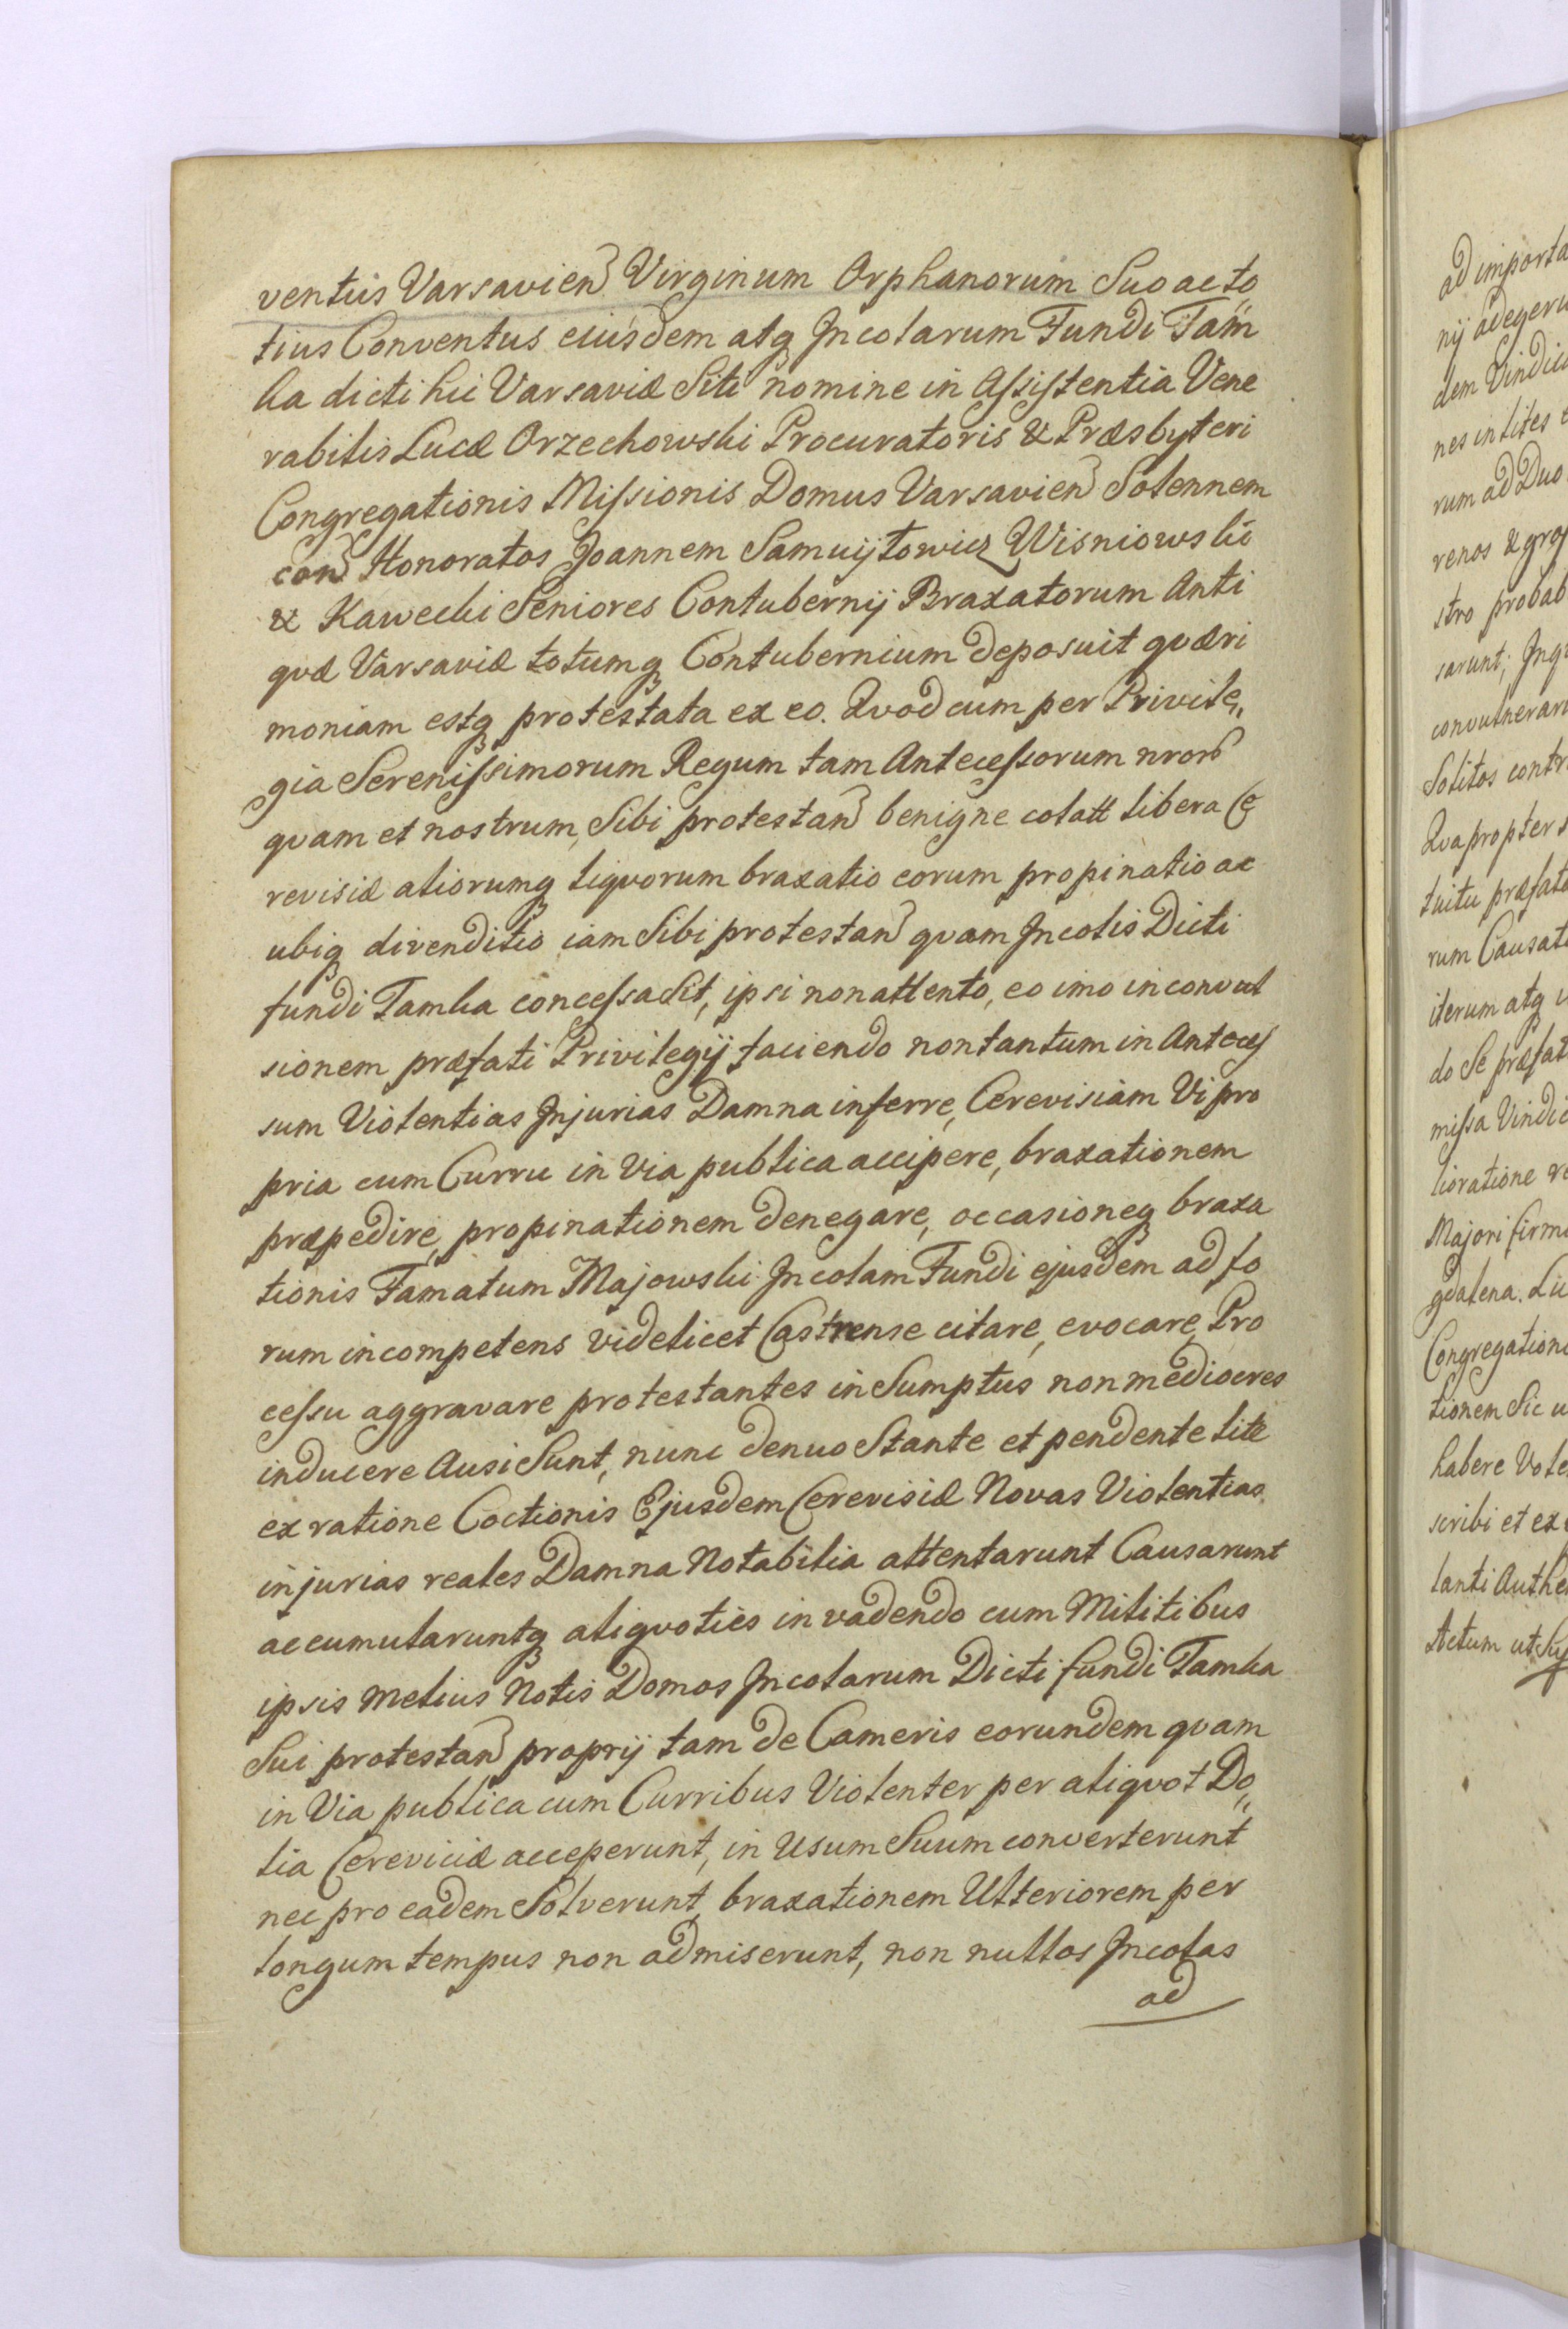 ventus Varsavien Virginum Orphanorum Suo ac to„
tius Conventus eiusdem atq Incolarum Fundi Tam
ka dicti hic Varsaviæ Siti nomine in Assistentia Vene
rabilis Lucæ Orzechowski Procuratoris & Præsbyteri
Congregationis Missionis Domus Varsavien Solennem
con Honoratos Joannem Samuijłowicz Wisniowski
& Kawecki Seniores Contubernij Braxatorum Anti
qvæ Varsaviæ totumq Contubernium deposuit qværi
moniam estq protestata ex eo. Qvod cum per Privile„
gia Serenissimorum Regum tam Antecessorum nrorum
qvam et nostrum, Sibi protestan benigne colatt libera Ce
revisiæ aliorumq liqvorum braxatio eorum propinatio ac
ubiq divenditio iam Sibi protestan qvam Incolis Dicti
fundi Tamka concessa Sit, ipsi non attento, eo imo in convul
sionem præfati Privilegij faciendo non tantum in Anteces
sum Violentias Injurias Damna inferre, Cerevisiam Vi pro
pria cum Curru in Via publica accipere, braxationem
præpedire, propinationem denegare, occasioneq braxa
tionis Famatum Majowski Incolam Fundi ejusdem ad fo
rum incompetens videlicet Castrense citare, evocare, Pro
cessu aggravare protestantes in Sumptus non mediocres
inducere Ausi Sunt, nunc denuo Stante et pendente lite
ex ratione Coctionis Ejusdem Cerevisiæ Novas Violentias
injurias reales Damna Notabilia attentarunt Causarunt
accumularuntq aliqvoties invadendo cum Militibus
ipsis melius Notis Domos Incolarum Dicti fundi Tamka
Sui protestan proprij tam de Cameris eorundem qvam
in Via publica cum Curribus Violenter per aliqvot Do„
lia Cereviciæ acceperunt, in Usum Suum converterunt
nec pro eadem Solverunt, braxationem Ulteriorem per
longum tempus non admiserunt, non nullos Incolas
ad
ad importa
nij adegeru
dem Vindic
nes in lites
rum ad Duo
renos & gros
stro probab
sarunt; Inq
convulnerar
Solitos contr
Qvapropter
tuitu præfat
rum Causat
iterum atq
do Se præfat
missa Vindic
lioratione
Majori firm
gdalena. Lu
Congregation
tionem Sic u
habere Vole
scribi et ex
lanti Authe
Actum ut Sup